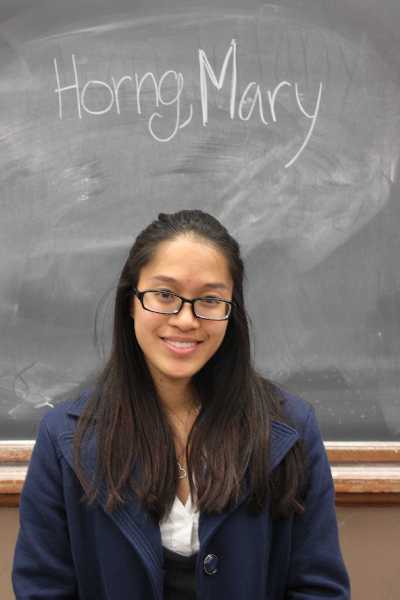 Horng, Mary